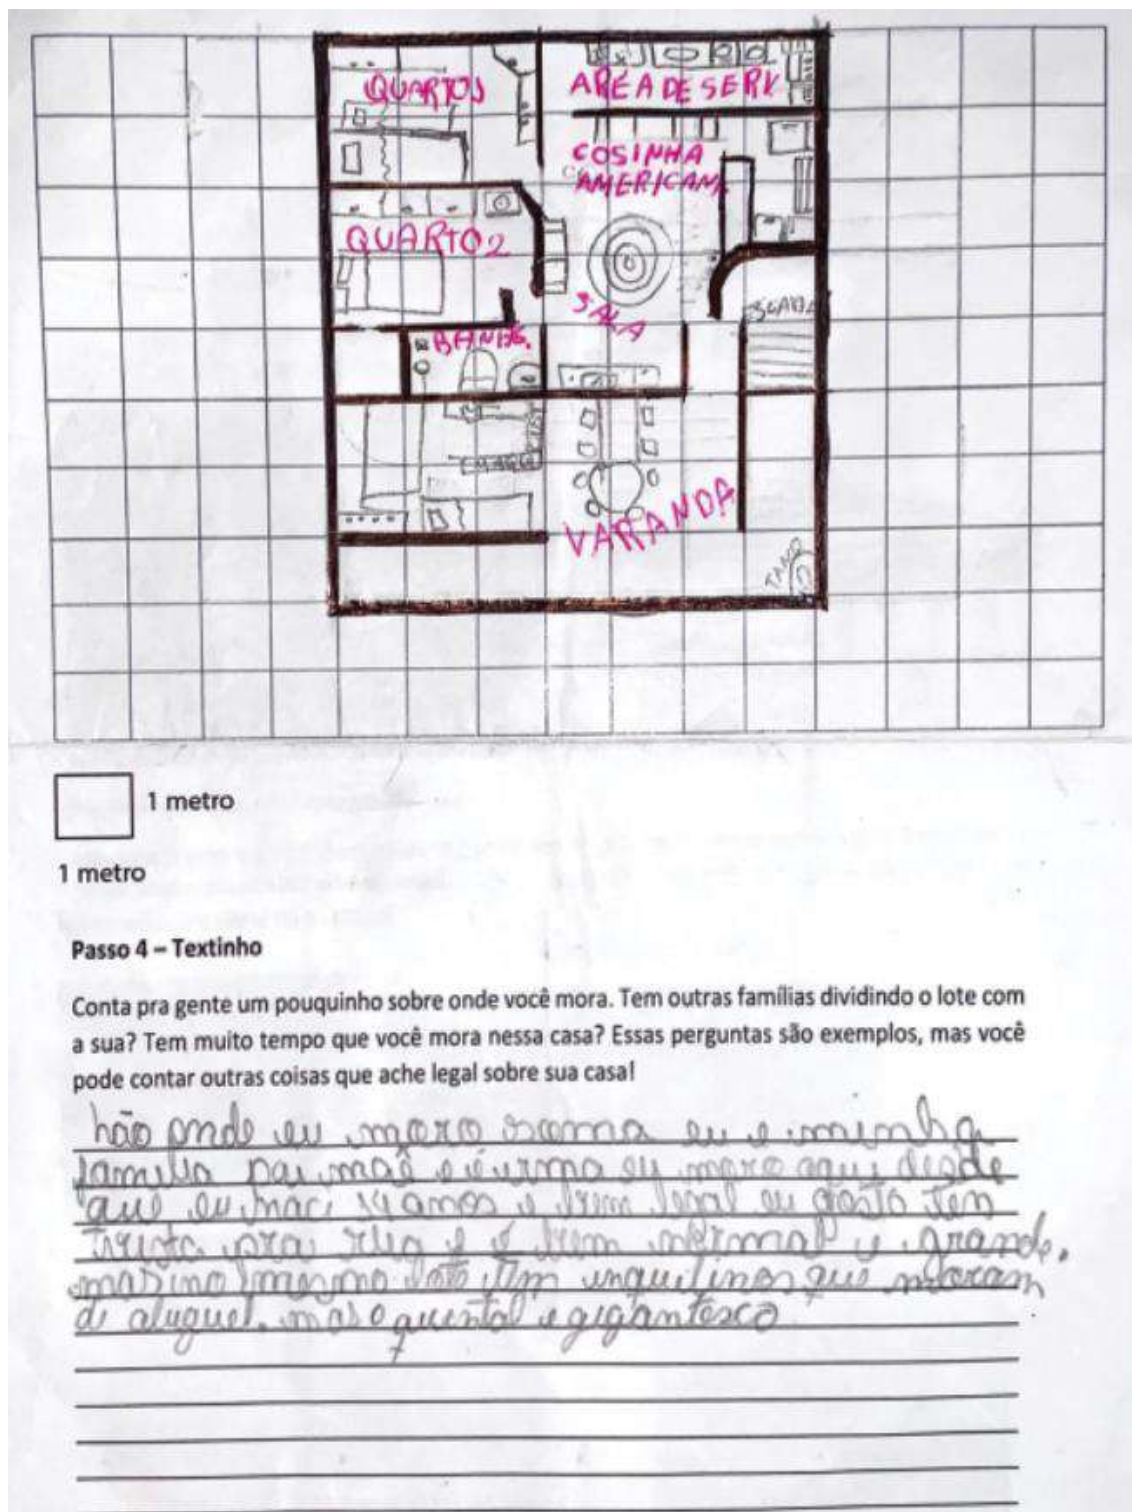 QUARTOS
AREA DE SERV
COSINHA
AMERICANA
QUARTO 2
SALA
ESCADA
BANH.
VARANDA
TANQ
1 metro
1 metro
Passo 4 – Textinho
Conta pra gente um pouquinho sobre onde você mora. Tem outras famílias dividindo o lote com
a sua? Tem muito tempo que você mora nessa casa? Essas perguntas são exemplos, mas você
pode contar outras coisas que ache legal sobre sua casa!
não onde eu moro eu e minha
familia pai mãe e irma eu moro aqui desde
que eu naci 14 anos e bem legal eu gosto tem
vista pra rua e é bem normal e grande.
mas no mesmo lote tem inquilinos que moram
de aluguel. mas o quintal e gigantesco